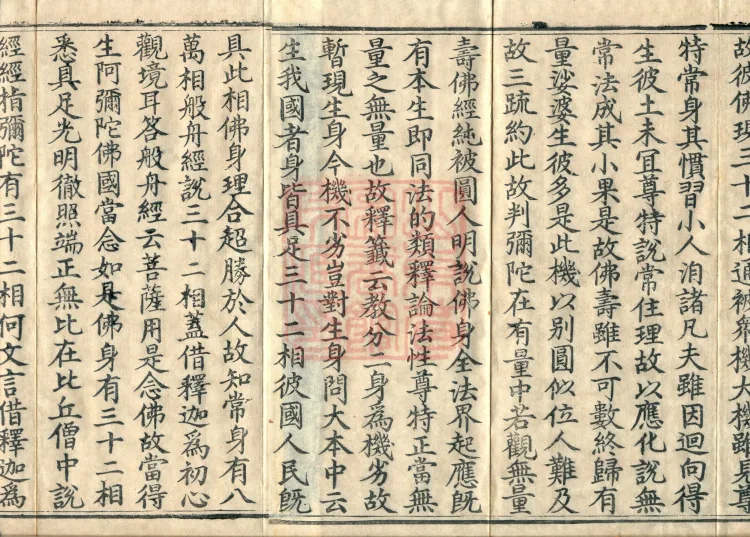 故彼佛現三十二相通被劣機大機雖是尊
特常身其慣習小人洎諸凡夫雖因迴向得
生彼土未宜尊特說常住理故以應化說無
常法成其小果是故佛壽雖不可數終歸有
量娑婆生彼多是此機以別圓似位人難及
故三疏約此故判彌陀在有量中若觀無量
壽佛經純被圓人明說佛身全法界起應旣
有本生即同法的類釋論法性尊特正當無
量之無量也故釋籤云教分二身為機劣故
暫現生身今機不劣豈對生身問大本中云
生我國者身皆具足三十二相彼國人民旣
具此相佛身理合超勝於人故知常身有八
萬相般舟經說三十二相蓋借釋迦為初心
觀境耳答般舟經云菩薩用是念佛故當得
生阿彌陀佛國當念如是佛身有三十二相
悉具足光明徹照端正無比在比丘僧中說
經經指彌陀有三十二相何文言借釋迦為